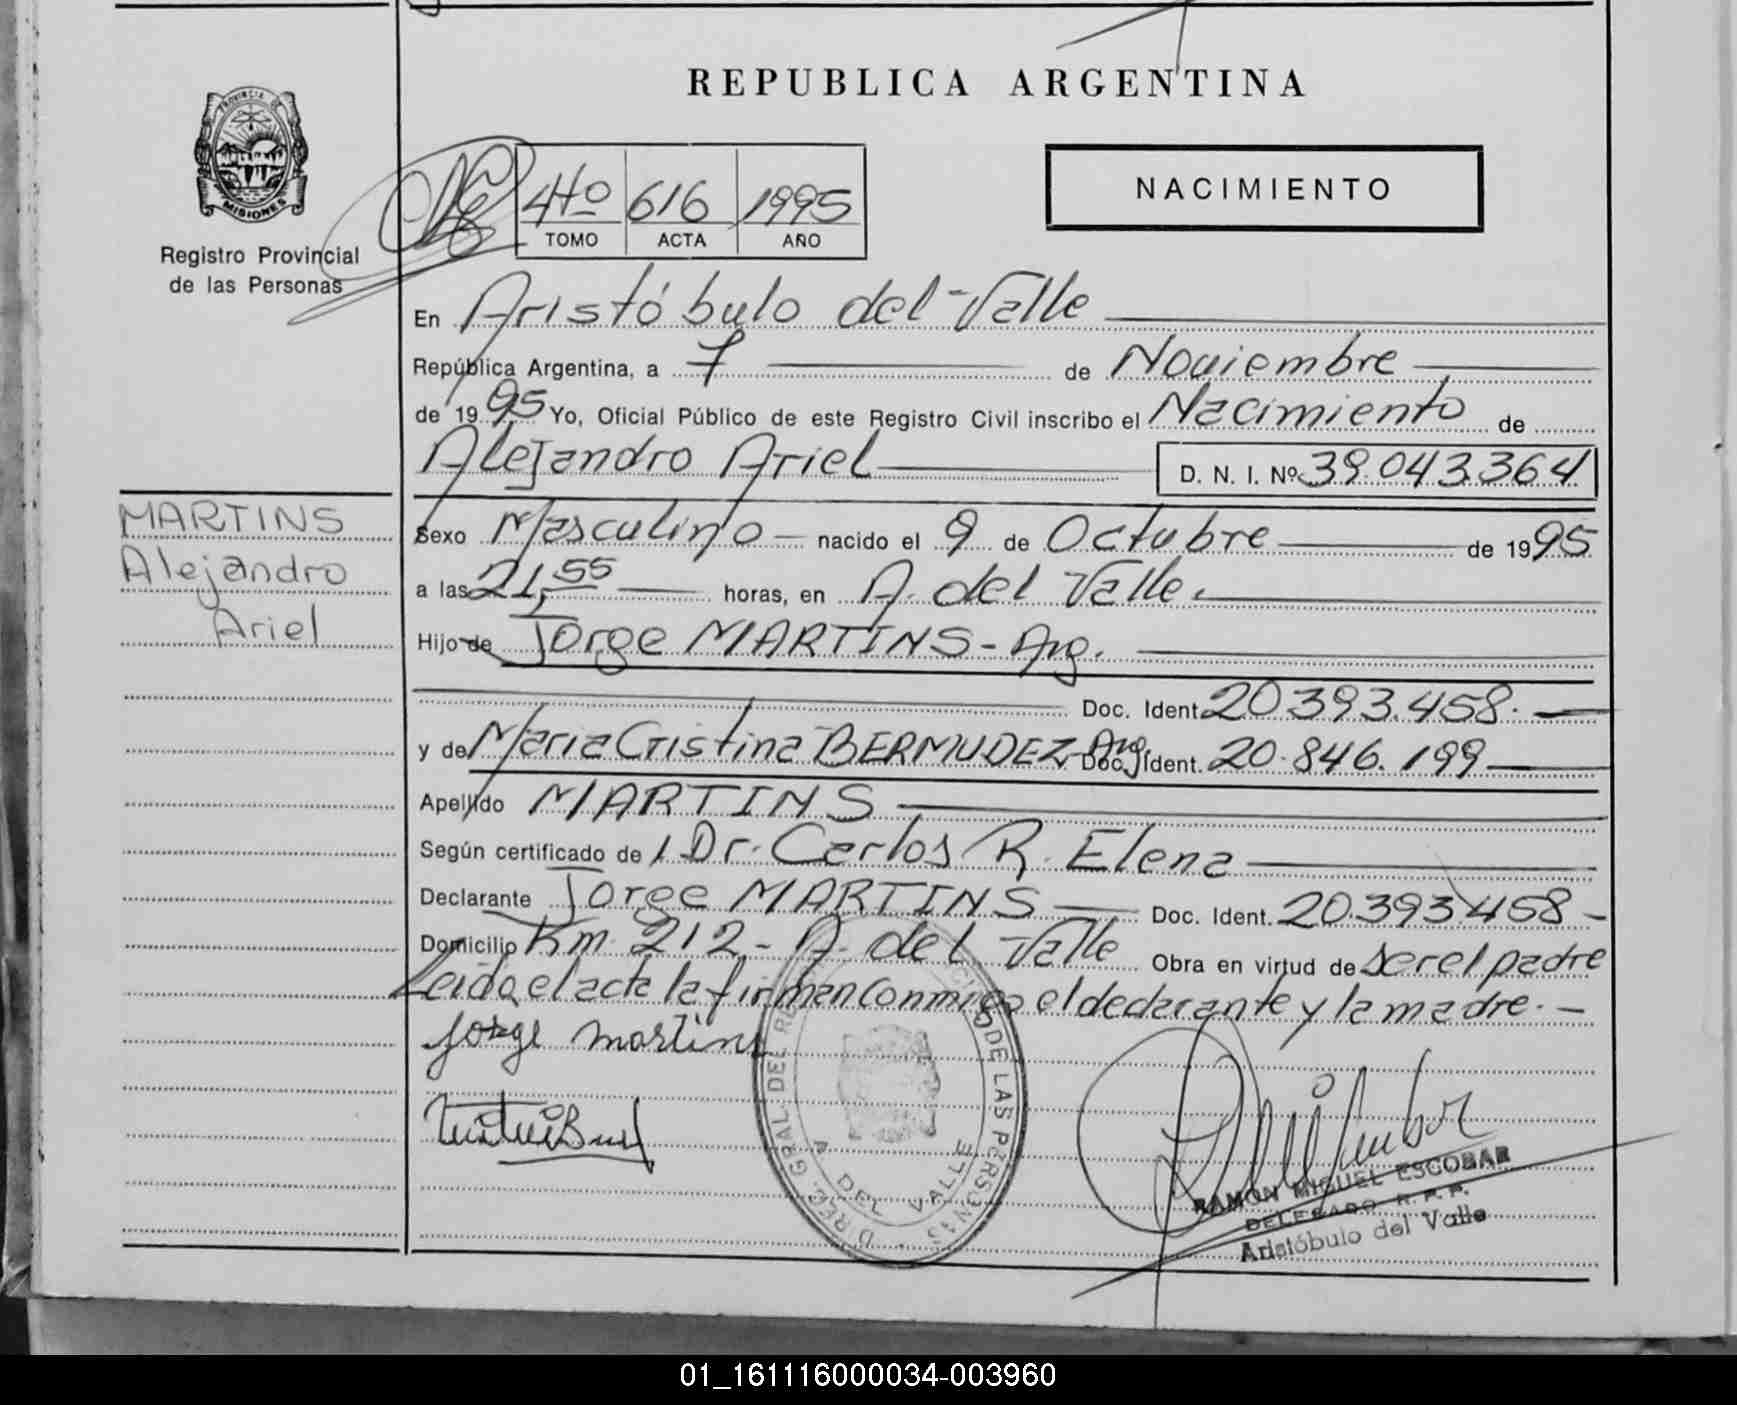 REPUBLICA ARGENTINA
PROVINCIA DE
MISIONES
Registro Provincial
de las Personas
4to 616 1995
TOMO ACTA AÑO
NACIMIENTO
En Aristóbulo del Valle
República Argentina, a 7 de Noviembre
de 1995 Yo, Oficial Público de este Registro Civil inscribo el Nacimiento de
Alejandro Ariel D. N. I. Nº 39.043.364
MARTINS
Alejandro
Ariel
Sexo Masculino - nacido el 9 de Octubre de 1995
a las 21,55 horas, en A. del Valle.
Hijo de Jorge MARTINS - Arg.
Doc. Ident. 20.393.458.-
y de Maria Cristina BERMUDEZ - Arg. Doc. Ident. 20.846.199
Apellido MARTINS
Según certificado de / Dr. Carlos R. Elena
Declarante Jorge MARTINS Doc. Ident. 20.393.458 -
Domicilio Km. 212 - A. del Valle Obra en virtud de ser el padre
Leida el acta la firman conmigo el declarante y la madre. -
Jorge Martins
DE LAS PERSONAS
A DEL VALLE
RAMON MIGUEL ESCOBAR
DELEGADO R. P. P.
Aristóbulo del Valle
01_161116000034-003960